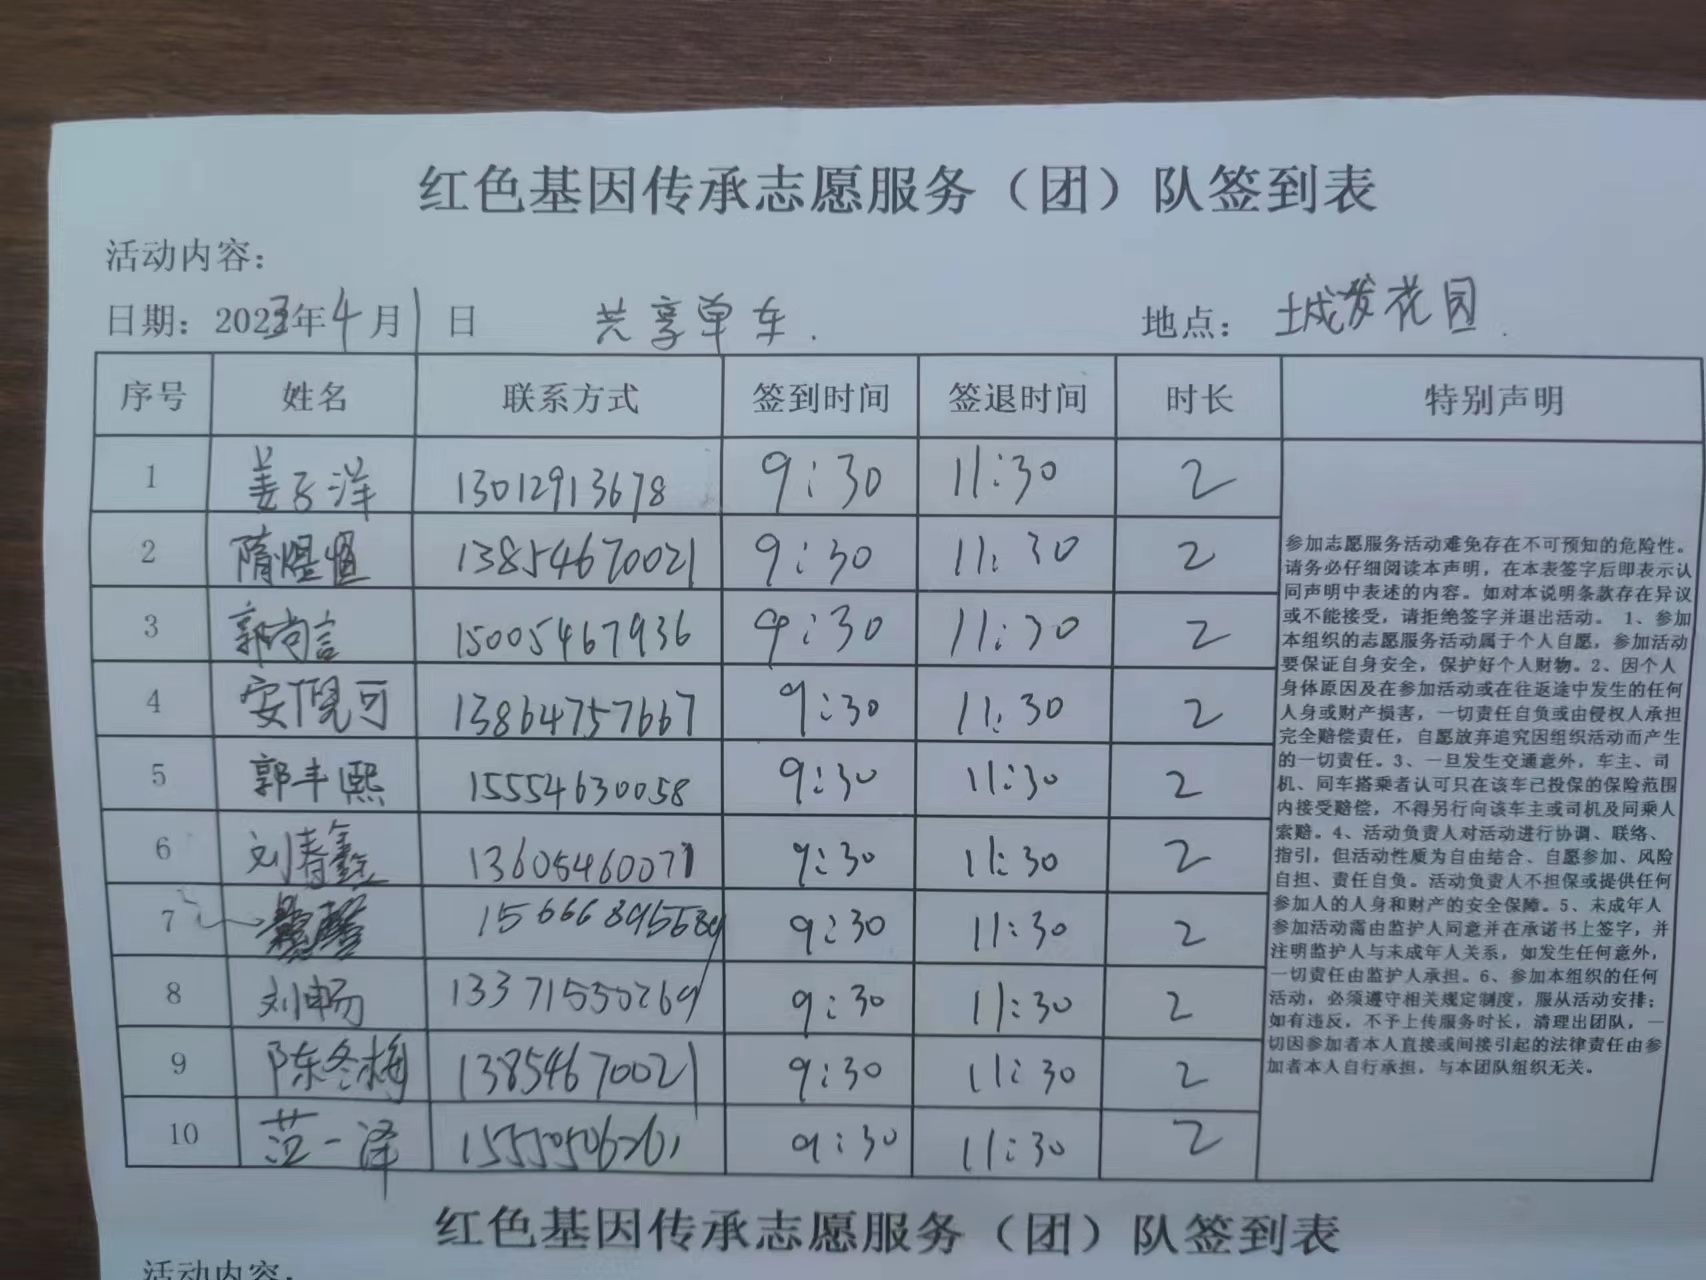 红色基因传承志愿服务（团）队签到表
活动内容：
日期：2023年4月1日 共享单车. 地点：城发花园.
序号 姓名 联系方式 签到时间 签退时间 时长 特别声明
1 姜子洋 13012913678 9:30 11:30 2
2 隋煜恒 13854670021 9:30 11:30 2
3 郭尚言 15005467936 9:30 11:30 2
4 安倪可 13864757667 9:30 11:30 2
5 郭丰熙 15554630058 9:30 11:30 2
6 刘春鑫 13605460071 9:30 11:30 2
7 9:30 11:30 2
8 刘畅 13371550269 9:30 11:30 2
9 陈冬梅 13854670021 9:30 11:30 2
10 范一泽 9:30 11:30 2
参加志愿服务活动难免存在不可预知的危险性。
请务必仔细阅读本声明，在本表签字后即表示认
同声明中表述的内容。如对本说明条款存在异议
或不能接受，请拒绝签字并退出活动。 1、参加
本组织的志愿服务活动属于个人自愿，参加活动
要保证自身安全，保护好个人财物。2、因个人
身体原因及在参加活动或在往返途中发生的任何
人身或财产损害，一切责任自负或由侵权人承担
完全赔偿责任，自愿放弃追究因组织活动而产生
的一切责任。3、一旦发生交通意外，车主、司
机、同车搭乘者认可只在该车已投保的保险范围
内接受赔偿，不得另行向该车主或司机及同乘人
索赔。4、活动负责人对活动进行协调、联络、
指引，但活动性质为自由结合、自愿参加、风险
自担、责任自负。活动负责人不担保或提供任何
参加人的人身和财产的安全保障。5、未成年人
参加活动需由监护人同意并在承诺书上签字，并
注明监护人与未成年人关系，如发生任何意外，
一切责任由监护人承担。6、参加本组织的任何
活动，必须遵守相关规定制度，服从活动安排；
如有违反，不予上传服务时长，清理出团队，一
切因参加者本人直接或间接引起的法律责任由参
加者本人自行承担，与本团队组织无关。
红色基因传承志愿服务（团）队签到表
活动内容：